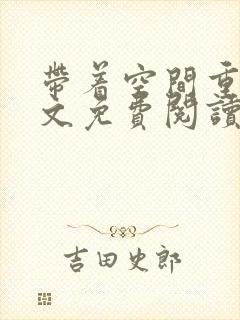 带着空間重
文免費閱讀
吉田史郎